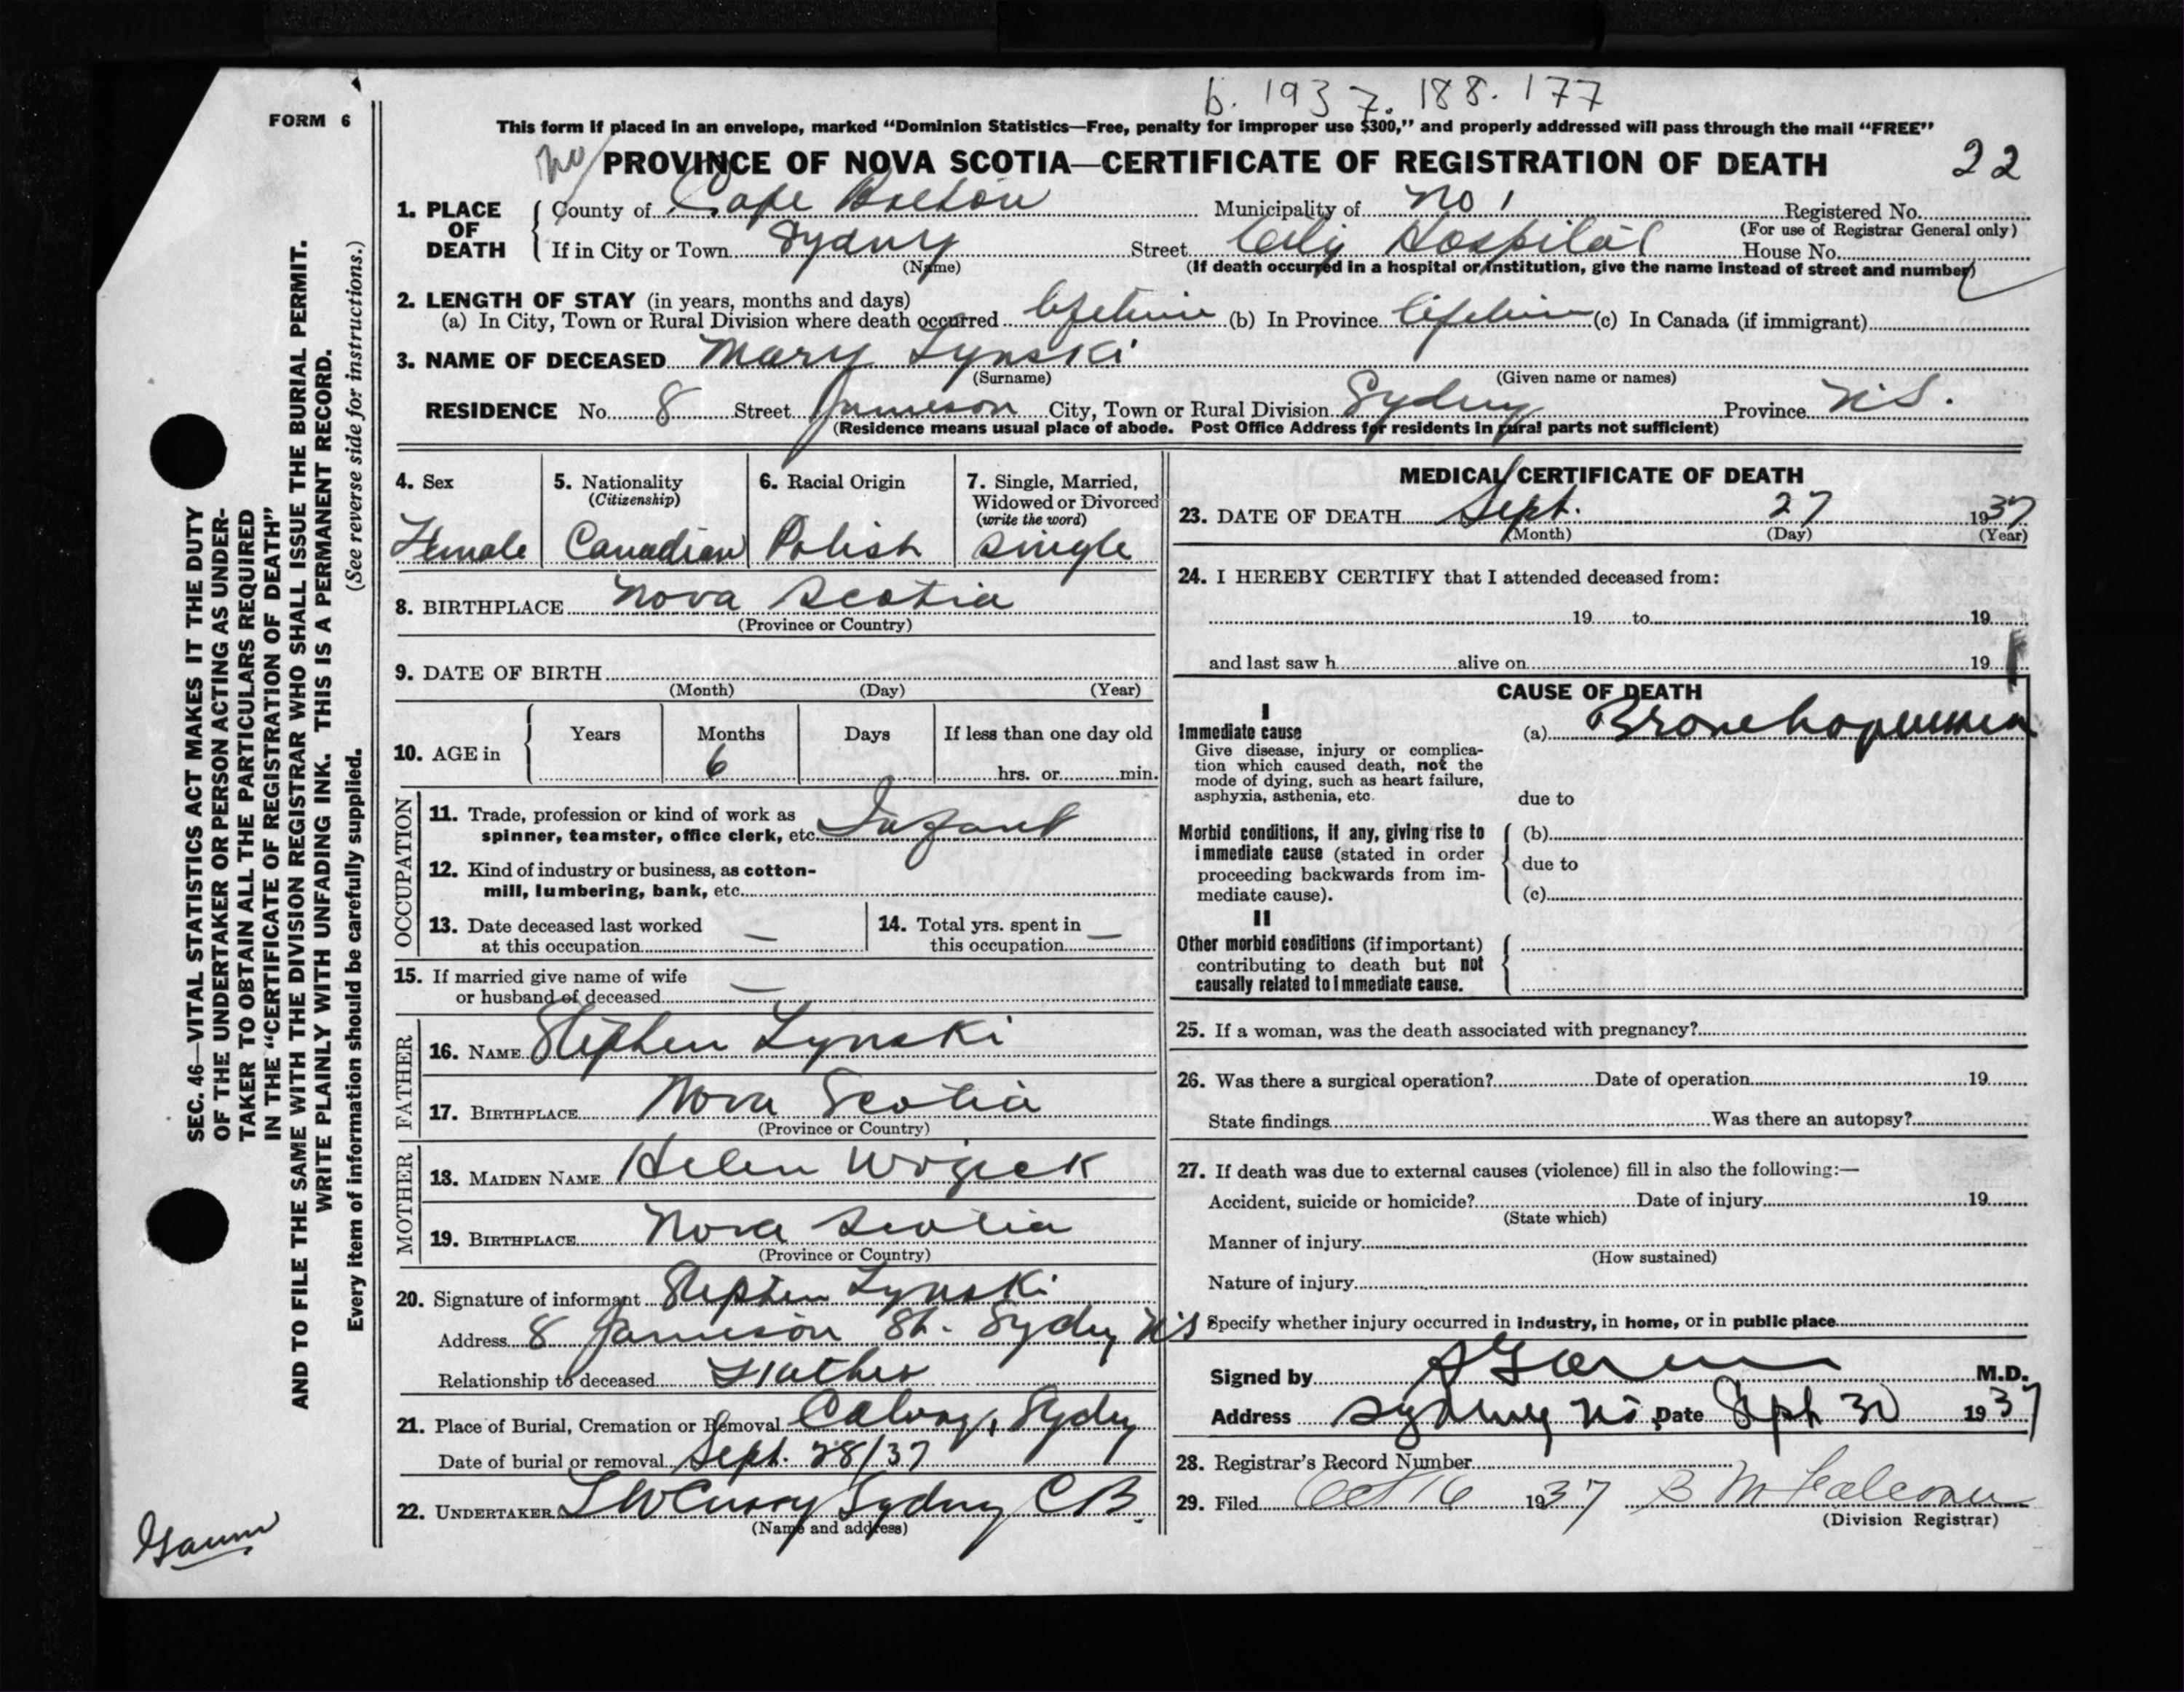 b. 1937. 188. 177
FORM 6
This form if placed in an envelope, marked “Dominion Statistics—Free, penalty for improper use $300,” and properly addressed will pass through the mail “FREE”
PROVINCE OF NOVA SCOTIA—CERTIFICATE OF REGISTRATION OF DEATH 22
1. PLACE OF DEATH County of Cape Breton Municipality of No 1 Registered No.
(For use of Registrar General only)
If in City or Town Sydney Street City Hospital House No.
(Name) (If death occurred in a hospital or institution, give the name instead of street and number)
2. LENGTH OF STAY (in years, months and days)
(a) In City, Town or Rural Division where death occurred lifetime (b) In Province lifetime (c) In Canada (if immigrant)
3. NAME OF DECEASED Mary Lynski
(Surname) (Given name or names)
RESIDENCE No. 8 Street Jameson City, Town or Rural Division Sydney Province N.S.
(Residence means usual place of abode. Post Office Address for residents in rural parts not sufficient)
4. Sex Female
5. Nationality (Citizenship) Canadian
6. Racial Origin Polish
7. Single, Married, Widowed or Divorced (write the word) Single
8. BIRTHPLACE Nova Scotia
(Province or Country)
9. DATE OF BIRTH
(Month) (Day) (Year)
10. AGE in Years Months Days If less than one day old
6 hrs. or min.
OCCUPATION
11. Trade, profession or kind of work as
spinner, teamster, office clerk, etc. Infant
12. Kind of industry or business, as cotton-
mill, lumbering, bank, etc.
13. Date deceased last worked
at this occupation —
14. Total yrs. spent in
this occupation —
15. If married give name of wife
or husband of deceased —
FATHER
16. NAME Stephen Lynski
17. BIRTHPLACE Nova Scotia
(Province or Country)
MOTHER
18. MAIDEN NAME Helen
19. BIRTHPLACE Nova Scotia
(Province or Country)
20. Signature of informant Stephen Lynski
Address 8 Jameson St. Sydney N.S
Relationship to deceased Father
21. Place of Burial, Cremation or Removal Calvary, Sydney
Date of burial or removal Sept. 28/37
22. UNDERTAKER L W Curry Sydney C B
(Name and address)
MEDICAL CERTIFICATE OF DEATH
23. DATE OF DEATH Sept. 27 1937
(Month) (Day) (Year)
24. I HEREBY CERTIFY that I attended deceased from:
19 to 19
and last saw h alive on 19
CAUSE OF DEATH
I
Immediate cause (a) Bronchopneumonia
Give disease, injury or complica-
tion which caused death, not the
mode of dying, such as heart failure,
asphyxia, asthenia, etc. due to
Morbid conditions, if any, giving rise to (b)
immediate cause (stated in order due to
proceeding backwards from im-
mediate cause). (c)
II
Other morbid conditions (if important)
contributing to death but not
causally related to immediate cause.
25. If a woman, was the death associated with pregnancy?
26. Was there a surgical operation? Date of operation 19
State findings Was there an autopsy?
27. If death was due to external causes (violence) fill in also the following:—
Accident, suicide or homicide? Date of injury 19
(State which)
Manner of injury
(How sustained)
Nature of injury
Specify whether injury occurred in industry, in home, or in public place
Signed by M.D.
Address Sydney NS Date Sept 30 1937
28. Registrar’s Record Number
29. Filed Oct 16 1937 B M Falconer
(Division Registrar)
SEC. 46—VITAL STATISTICS ACT MAKES IT THE DUTY
OF THE UNDERTAKER OR PERSON ACTING AS UNDER-
TAKER TO OBTAIN ALL THE PARTICULARS REQUIRED
IN THE “CERTIFICATE OF REGISTRATION OF DEATH”
AND TO FILE THE SAME WITH THE DIVISION REGISTRAR WHO SHALL ISSUE THE BURIAL PERMIT.
WRITE PLAINLY WITH UNFADING INK. THIS IS A PERMANENT RECORD.
Every item of information should be carefully supplied. (See reverse side for instructions.)